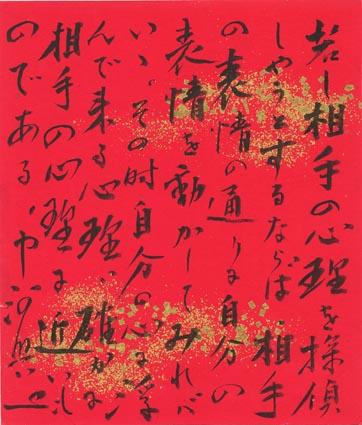 若し相手の心理を探偵
しやうとするならば、相手
の表情の通りに自分の
表情を動かしてみれば
いゝ。その時自分の心に浮
んで来る心理は確かに
相手の心理に近いも
のである、中河與一